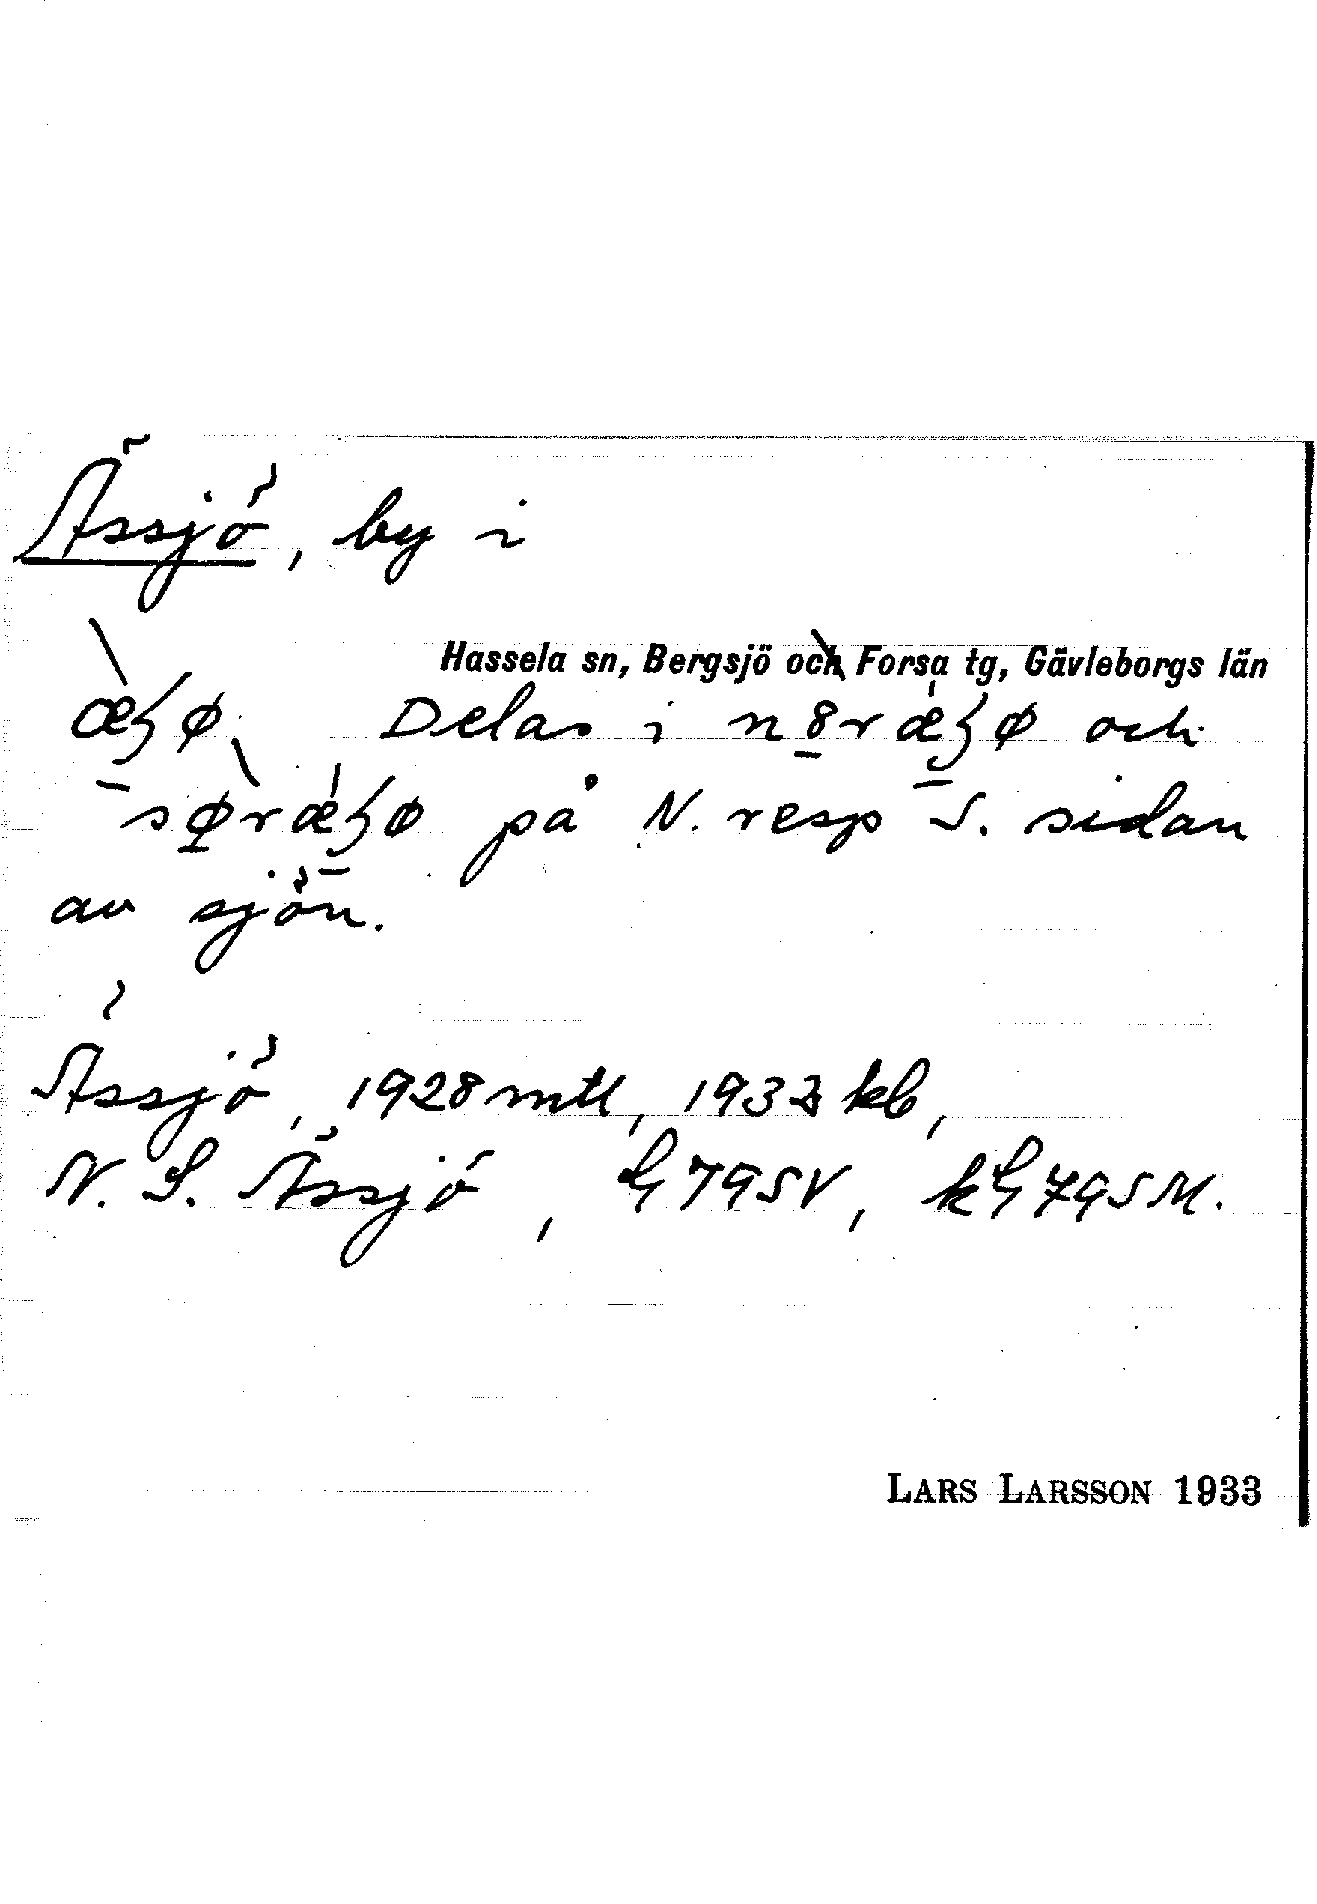 Ässjö, by i
Hassela sn, Bergsjö och Forsa tg, Gävleborgs län
Delas i n8ræʒø och
søræʒø på N. resp S. sidan
av sjön.
Ässjö, 1928 mtl, 1933 kb,
N. S. Ässjö, 79SV, 79SM.
LARS LARSSON 1933